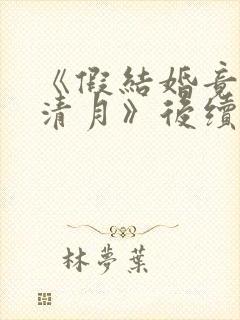 《假結婚竟
清月》後續
林夢葉